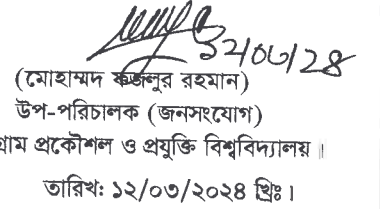 ১২/০৩/২৪
(মোহাম্মদ ফজলুর রহমান)
উপ-পরিচালক (জনসংযোগ)
গ্রাম প্রকৌশল ও প্রযুক্তি বিশ্ববিদ্যালয়।
তারিখ: ১২/০৩/২০২৪ খ্রিঃ।